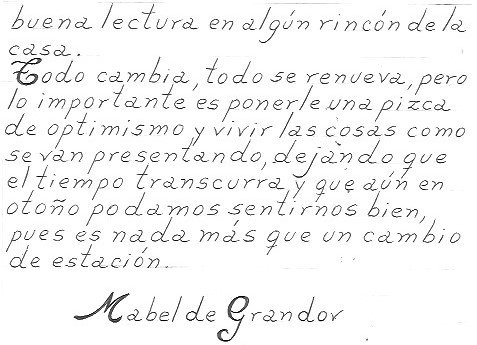 buena lectura en algún rincón de la
casa.
Todo cambia, todo se renueva, pero
lo importante es ponerle una pizca
de optimismo y vivir las cosas como
se van presentando, dejando que
el tiempo transcurra y que aún en
otoño podamos sentirnos bien,
pues es nada más que un cambio
de estación.
Mabel de Grandov